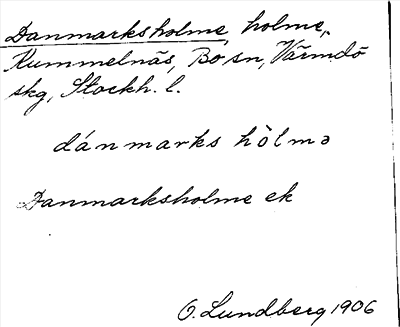 Danmarksholme, holme,
Kummelnäs, Bo sn, Värmdö
skg, Stockh. l.
dánmarks hòlmə
Danmarksholme ek
O. Lundberg 1906